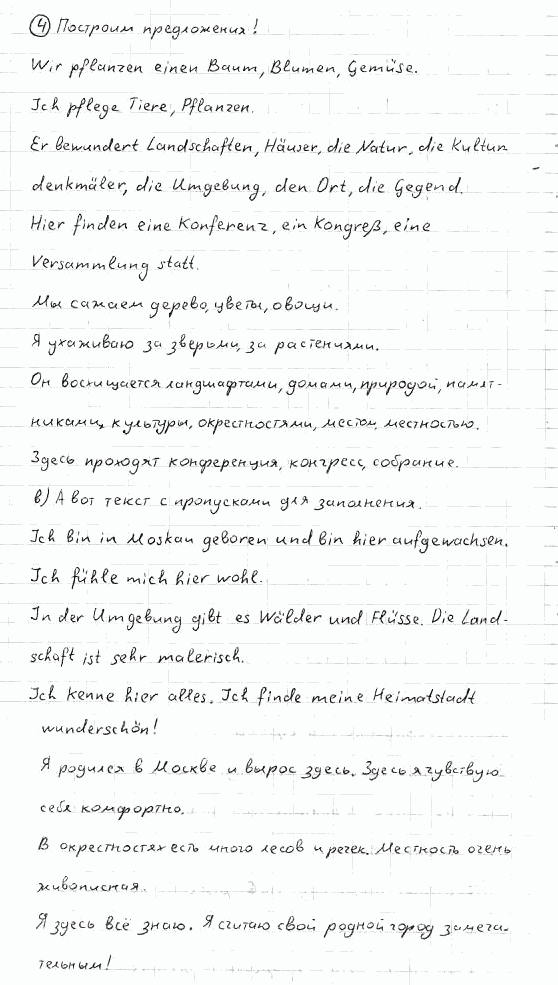 ④ Построим предложения!
Wir pflanzen einen Baum, Blumen, Gemüse.
Ich pflege Tiere, Pflanzen.
Er bewundert Landschaften, Häuser, die Natur, die Kultur-
denkmäler, die Umgebung, den Ort, die Gegend.
Hier finden eine Konferenz, ein Kongreß, eine
Versammlung statt.
Мы сажаем дерево, цветы, овощи.
Я ухаживаю за зверьми, за растениями.
Он восхищается ландшафтами, домами, природой, памят-
никами, культуры, окрестностями, местом, местностью.
Здесь проходят конференция, конгресс, собрание.
в) А вот текст с пропусками для заполнения.
Ich bin in Moskau geboren und bin hier aufgewachsen.
Ich fühle mich hier wohl.
In der Umgebung gibt es Wälder und Flüsse. Die Land-
schaft ist sehr malerisch.
Ich kenne hier alles. Ich finde meine Heimatstadt
wunderschön!
Я родился в Москве и вырос здесь. Здесь я чувствую
себя комфортно.
В окрестностях есть много лесов и речек. Местность очень
живописная.
Я здесь всё знаю. Я считаю свой родной город замеча-
тельным!